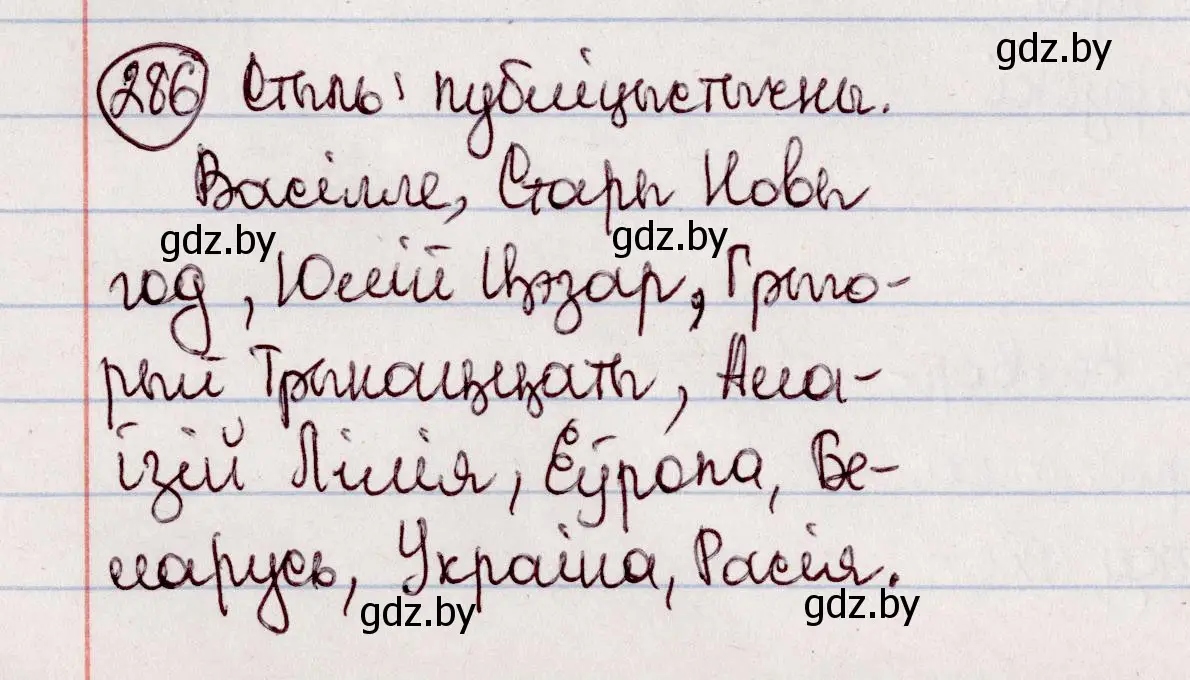 gdz.by
286 Стыль: публіцыстычны.
Васілле, Стары Новы
gdz.by gdz.by
год, Юлій Цэзар, Грыго-
рый Трынаццаты, Ала-
ізій Лілія, Еўропа, Бе-
ларусь, Украіна, Расія.
gdz.by gdz.by